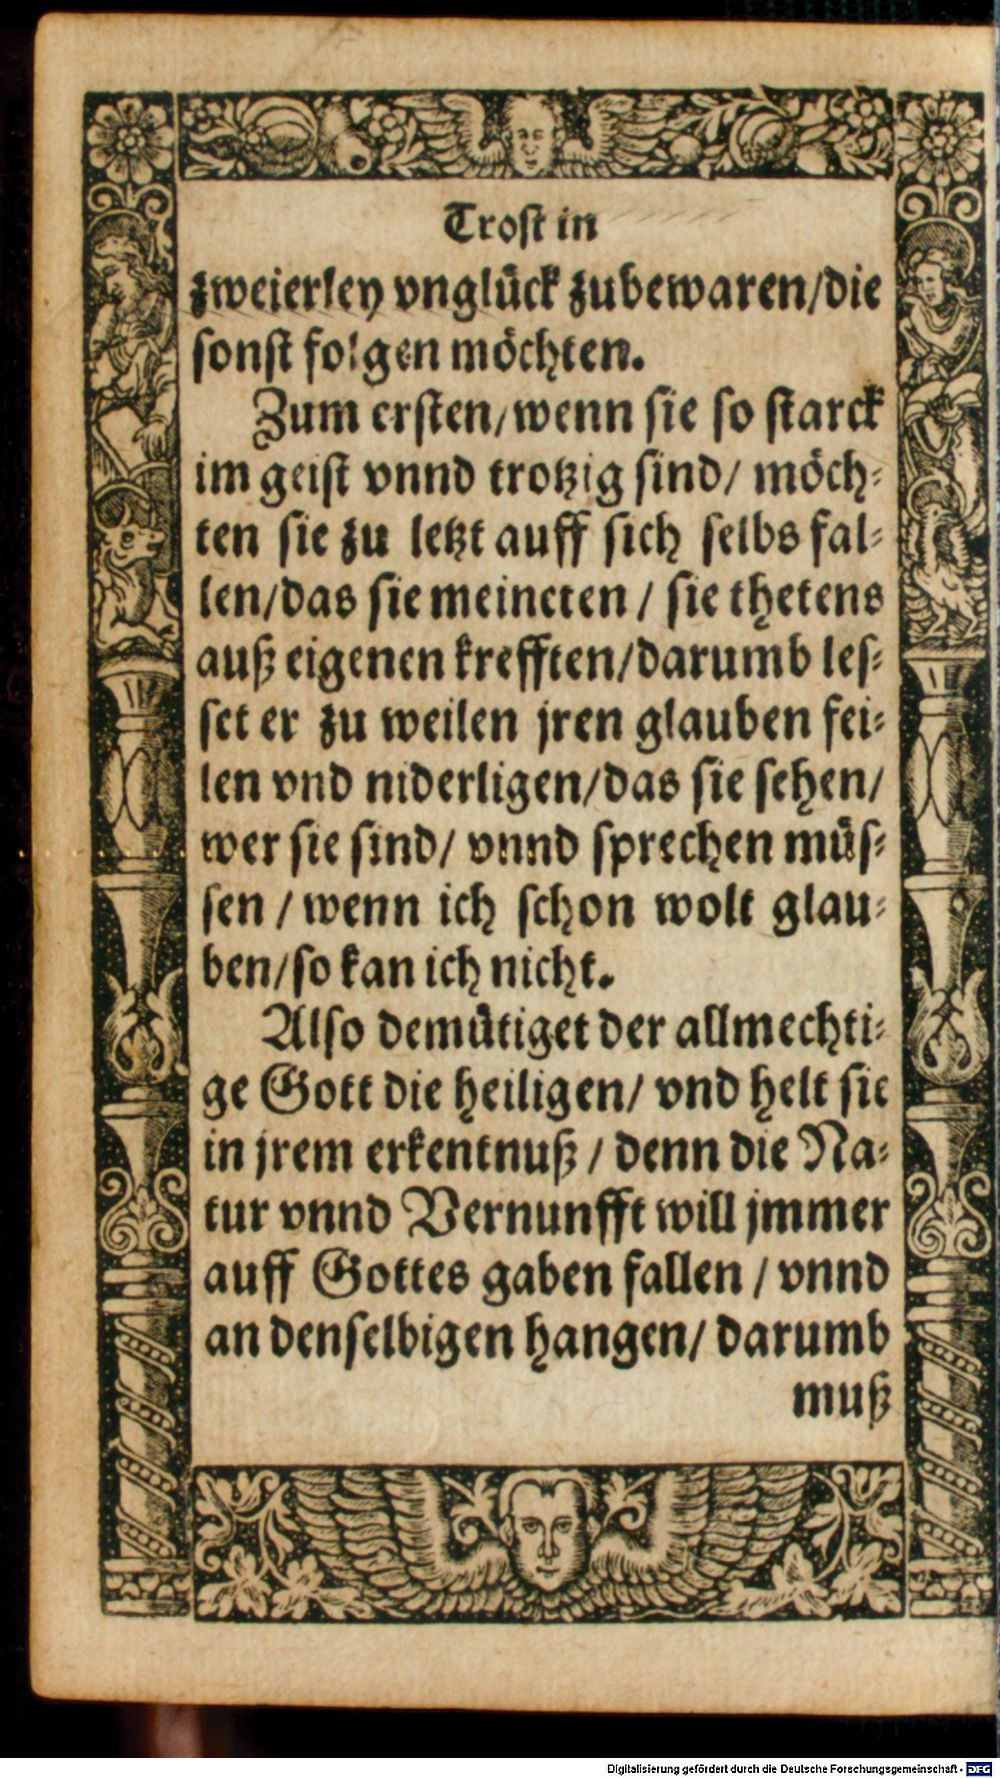 Trost in
zweierley vnglück zubewaren/die
sonst folgen möchten.
Zum ersten/wenn sie so starck
im geist vnnd trotzig sind/ möch-
ten sie zu letzt auff sich selbs fal-
len/das sie meineten / sie thetens
auß eigenen krefften/darumb les-
set er zu weilen jren glauben fei-
len vnd niderligen/das sie sehen/
wer sie sind/ vnnd sprechen müs-
sen / wenn ich schon wolt glau-
ben/so kan ich nicht.
Also demütiget der allmechti-
ge Gott die heiligen/ vnd helt sie
in jrem erkentnuß / denn die Na-
tur vnnd Vernunfft will jmmer
auff Gottes gaben fallen / vnnd
an denselbigen hangen/ darumb
muß
Digitalisierung gefördert durch die Deutsche Forschungsgemeinschaft - DFG